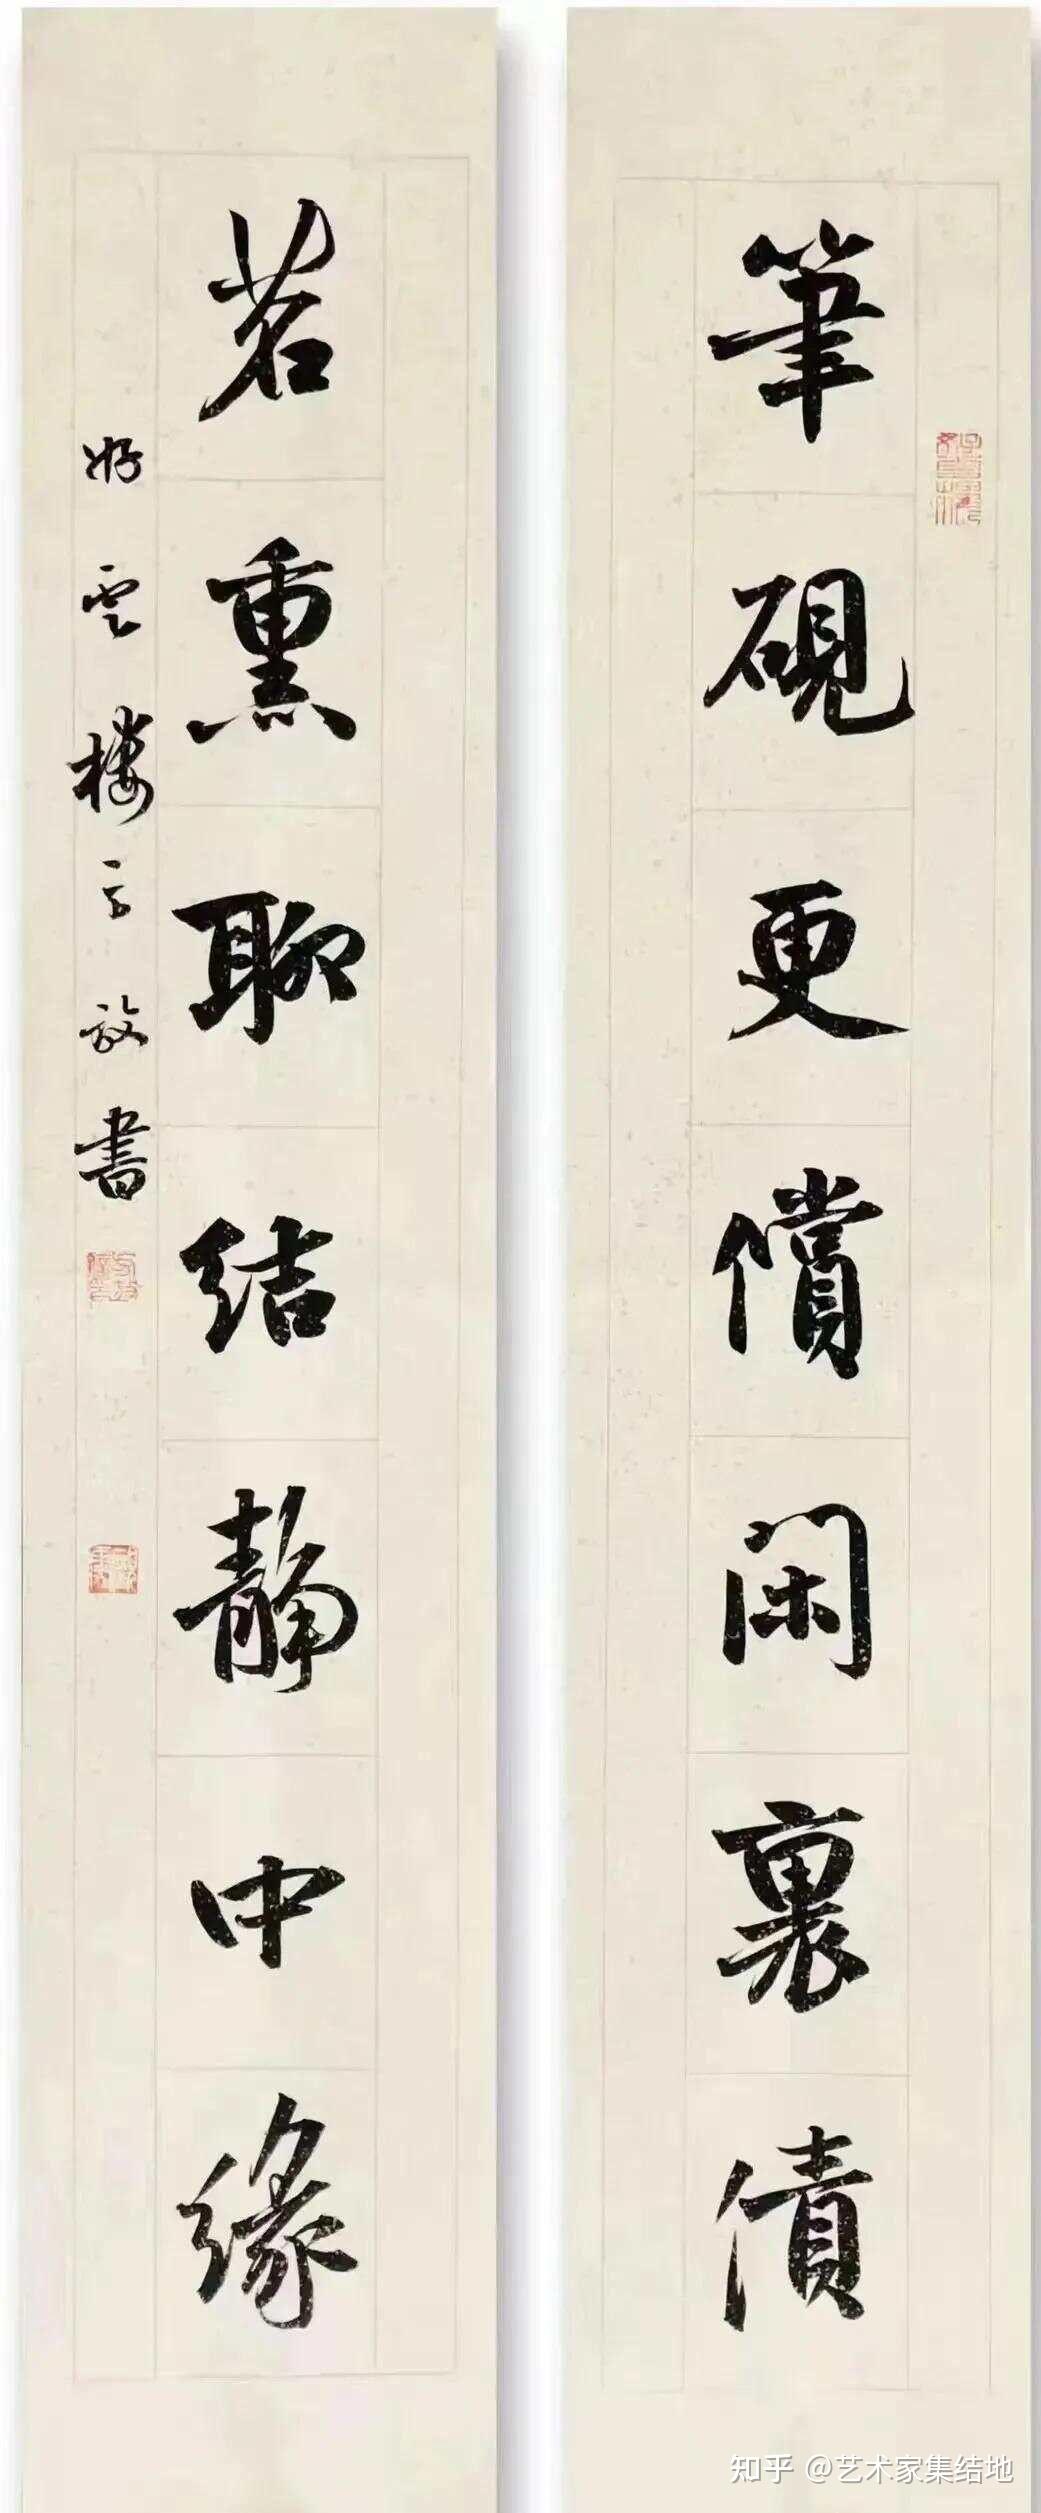 筆硯更償閑裏債
茗熏聊結静中緣
好雲樓主放書
知乎 @艺术家集结地